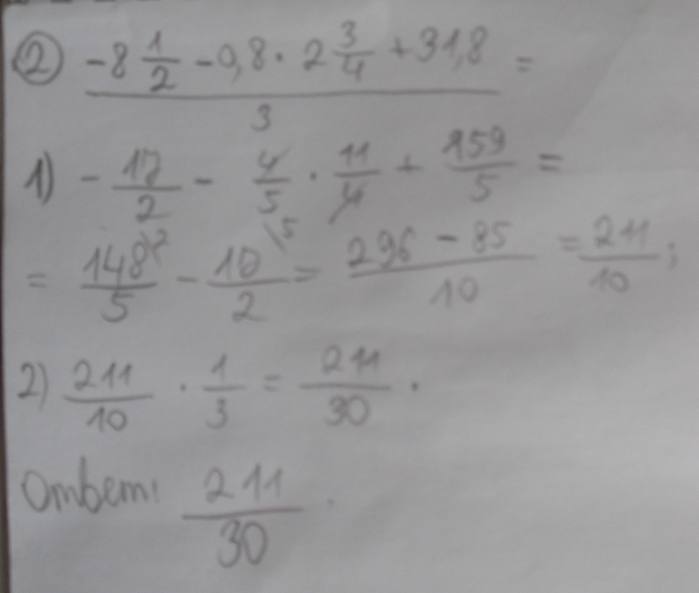 ② (-8 1/2 - 0,8 · 2 3/4 + 31,8) / 3 =
1) - 17/2 - 4/5 · 11/4 + 159/5 =
= 148/5 \2 - 17/2 \5 = (296 - 85)/10 = 211/10 ;
2) 211/10 · 1/3 = 211/30 .
Ответ: 211/30 .